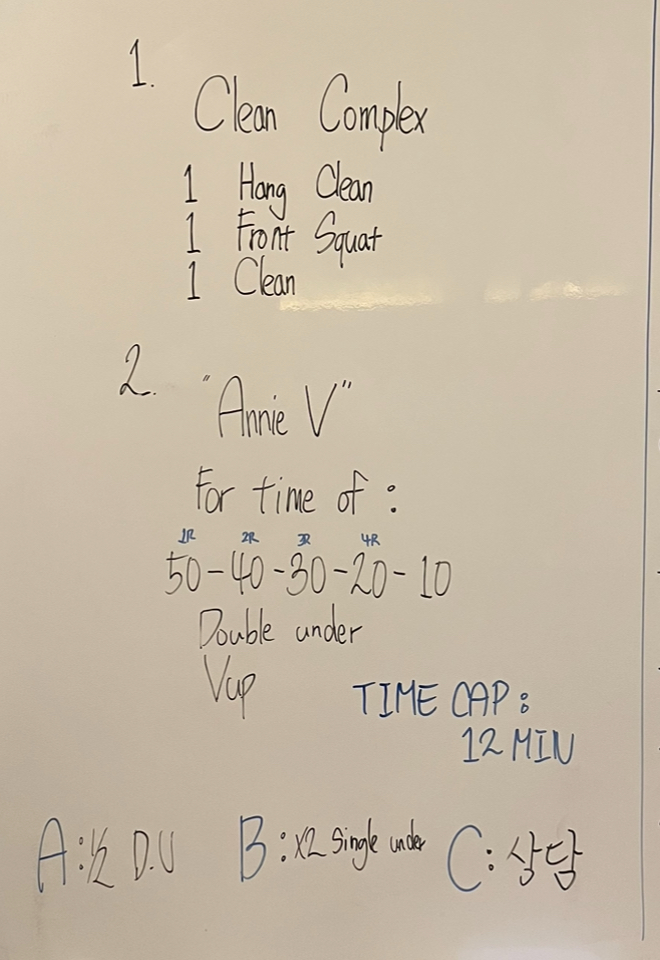 1.
Clean Complex
1 Hang Clean
1 Front Squat
1 Clean
2.
"Annie V"
For time of :
1R 2R 3R 4R
50-40-30-20-10
Double under
Vup
TIME CAP:
12 MIN
A: 1/2 D.U B: x2 Single under C: 상담